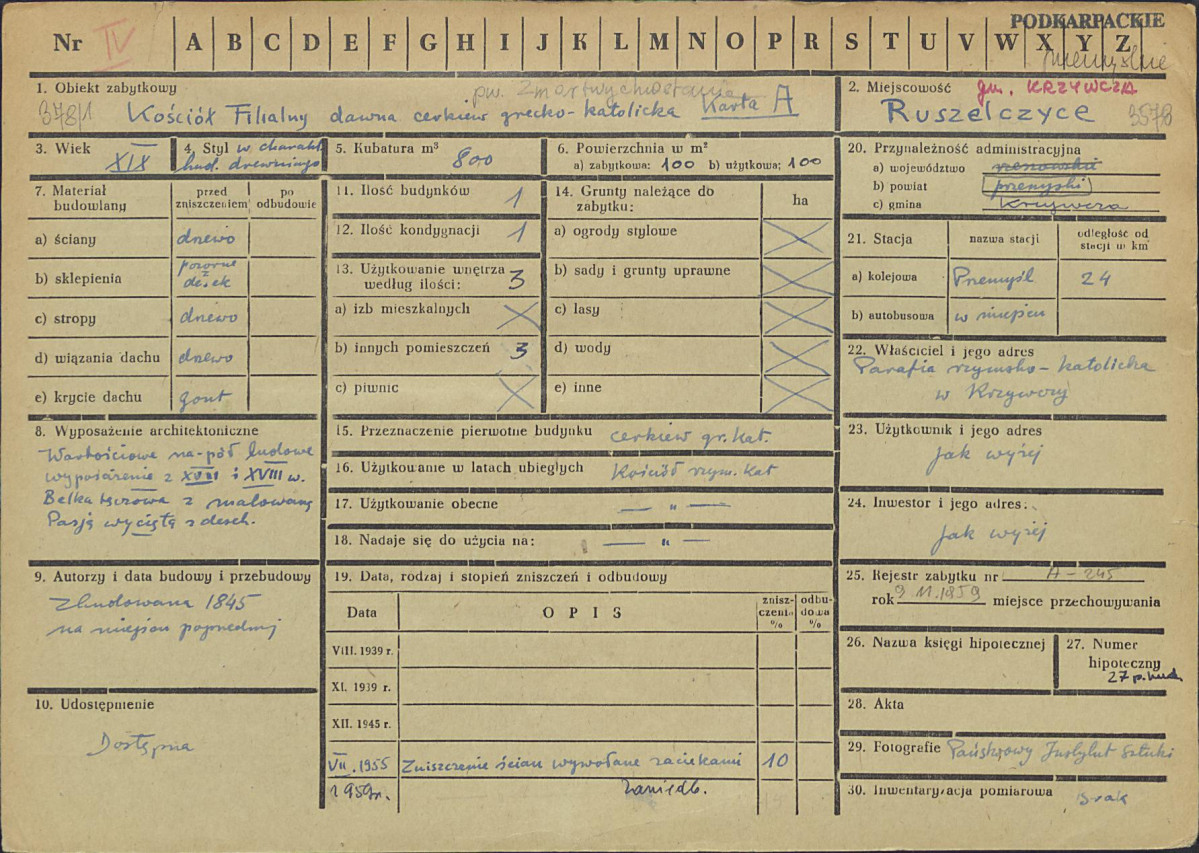 PODKARPACKIE
Nr IV A B C D E F G H I J K L M N O P R S T U V W X Y Z
przemyskie
1. Obiekt zabytkowy
pw. Zmartwychwstania
378/1 Kościół Filialny dawna cerkiew grecko-katolicka Karta A
2. Miejscowość gm. KRZYWCZA
Ruszelczyce 3578
3. Wiek
XIX
4. Styl w charakt.
bud. drewnianego
5. Kubatura m³
800
6. Powierzchnia w m²
a) zabytkowa: 100 b) użytkowa: 100
7. Materiał budowlany
przed zniszczeniem
po odbudowie
a) ściany drewo
b) sklepienia pozorne
z desek
c) stropy drewo
d) wiązania dachu drewo
e) krycie dachu gont
8. Wyposażenie architektoniczne
Wartościowe na-pół ludowe
wyposażenie z XVII i XVIII w.
Belka tęczowa z malowaną
Pasją wyciętą z desek.
9. Autorzy i data budowy i przebudowy
Zbudowana 1845
na miejscu poprzedniej
10. Udostępnienie
Dostępna
11. Ilość budynków 1
12. Ilość kondygnacji 1
13. Użytkowanie wnętrza
według ilości: 3
a) izb mieszkalnych
b) innych pomieszczeń 3
c) piwnic
14. Grunty należące do
zabytku:
ha
a) ogrody stylowe
b) sady i grunty uprawne
c) lasy
d) wody
e) inne
15. Przeznaczenie pierwotne budynku cerkiew gr. kat.
16. Użytkowanie w latach ubiegłych Kościół rzym. kat
17. Użytkowanie obecne — " —
18. Nadaje się do użycia na: — " —
19. Data, rodzaj i stopień zniszczeń i odbudowy
Data OPIS zniszczenia % odbudowa %
VIII. 1939 r.
XI. 1939 r.
XII. 1945 r.
VII. 1955 Zniszczenie ścian wywołane zaciekami 10
1959r. zaniedb.
20. Przynależność administracyjna
a) województwo rzeszowskie
b) powiat przemyski
c) gmina Krzywcza
21. Stacja
nazwa stacji
odległość od
stacji w km
a) kolejowa Przemyśl 24
b) autobusowa w miejscu
22. Właściciel i jego adres
Parafia rzymsko-katolicka
w Krzywczy
23. Użytkownik i jego adres
jak wyżej
24. Inwestor i jego adres:
jak wyżej
25. Rejestr zabytku nr A-245
rok 9.11.1959 miejsce przechowywania
26. Nazwa księgi hipotecznej
27. Numer
hipoteczny
27 p.bud.
28. Akta
29. Fotografie Państwowy Instytut Sztuki
30. Inwentaryzacja pomiarowa brak